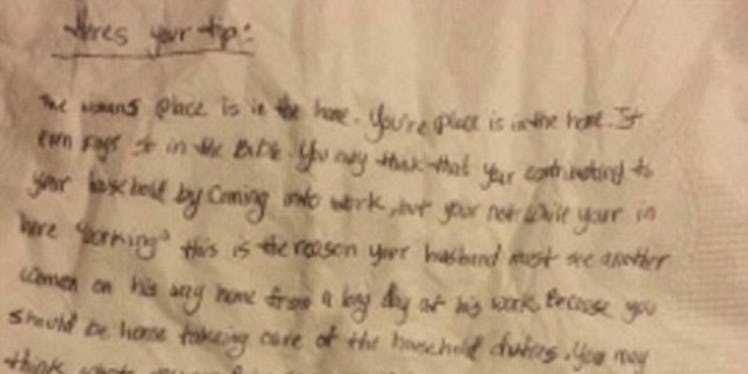 Heres your tip:
The womans place is in the home. You're place is in the home. It
even says so in the Bible. You may think that your contributing to
your household by coming into work, but your not. While your in
here "working" this is the reason your husband must see another
women on his way home from a long day at his work. Because you
should be home takeing care of the household duties. You may
think